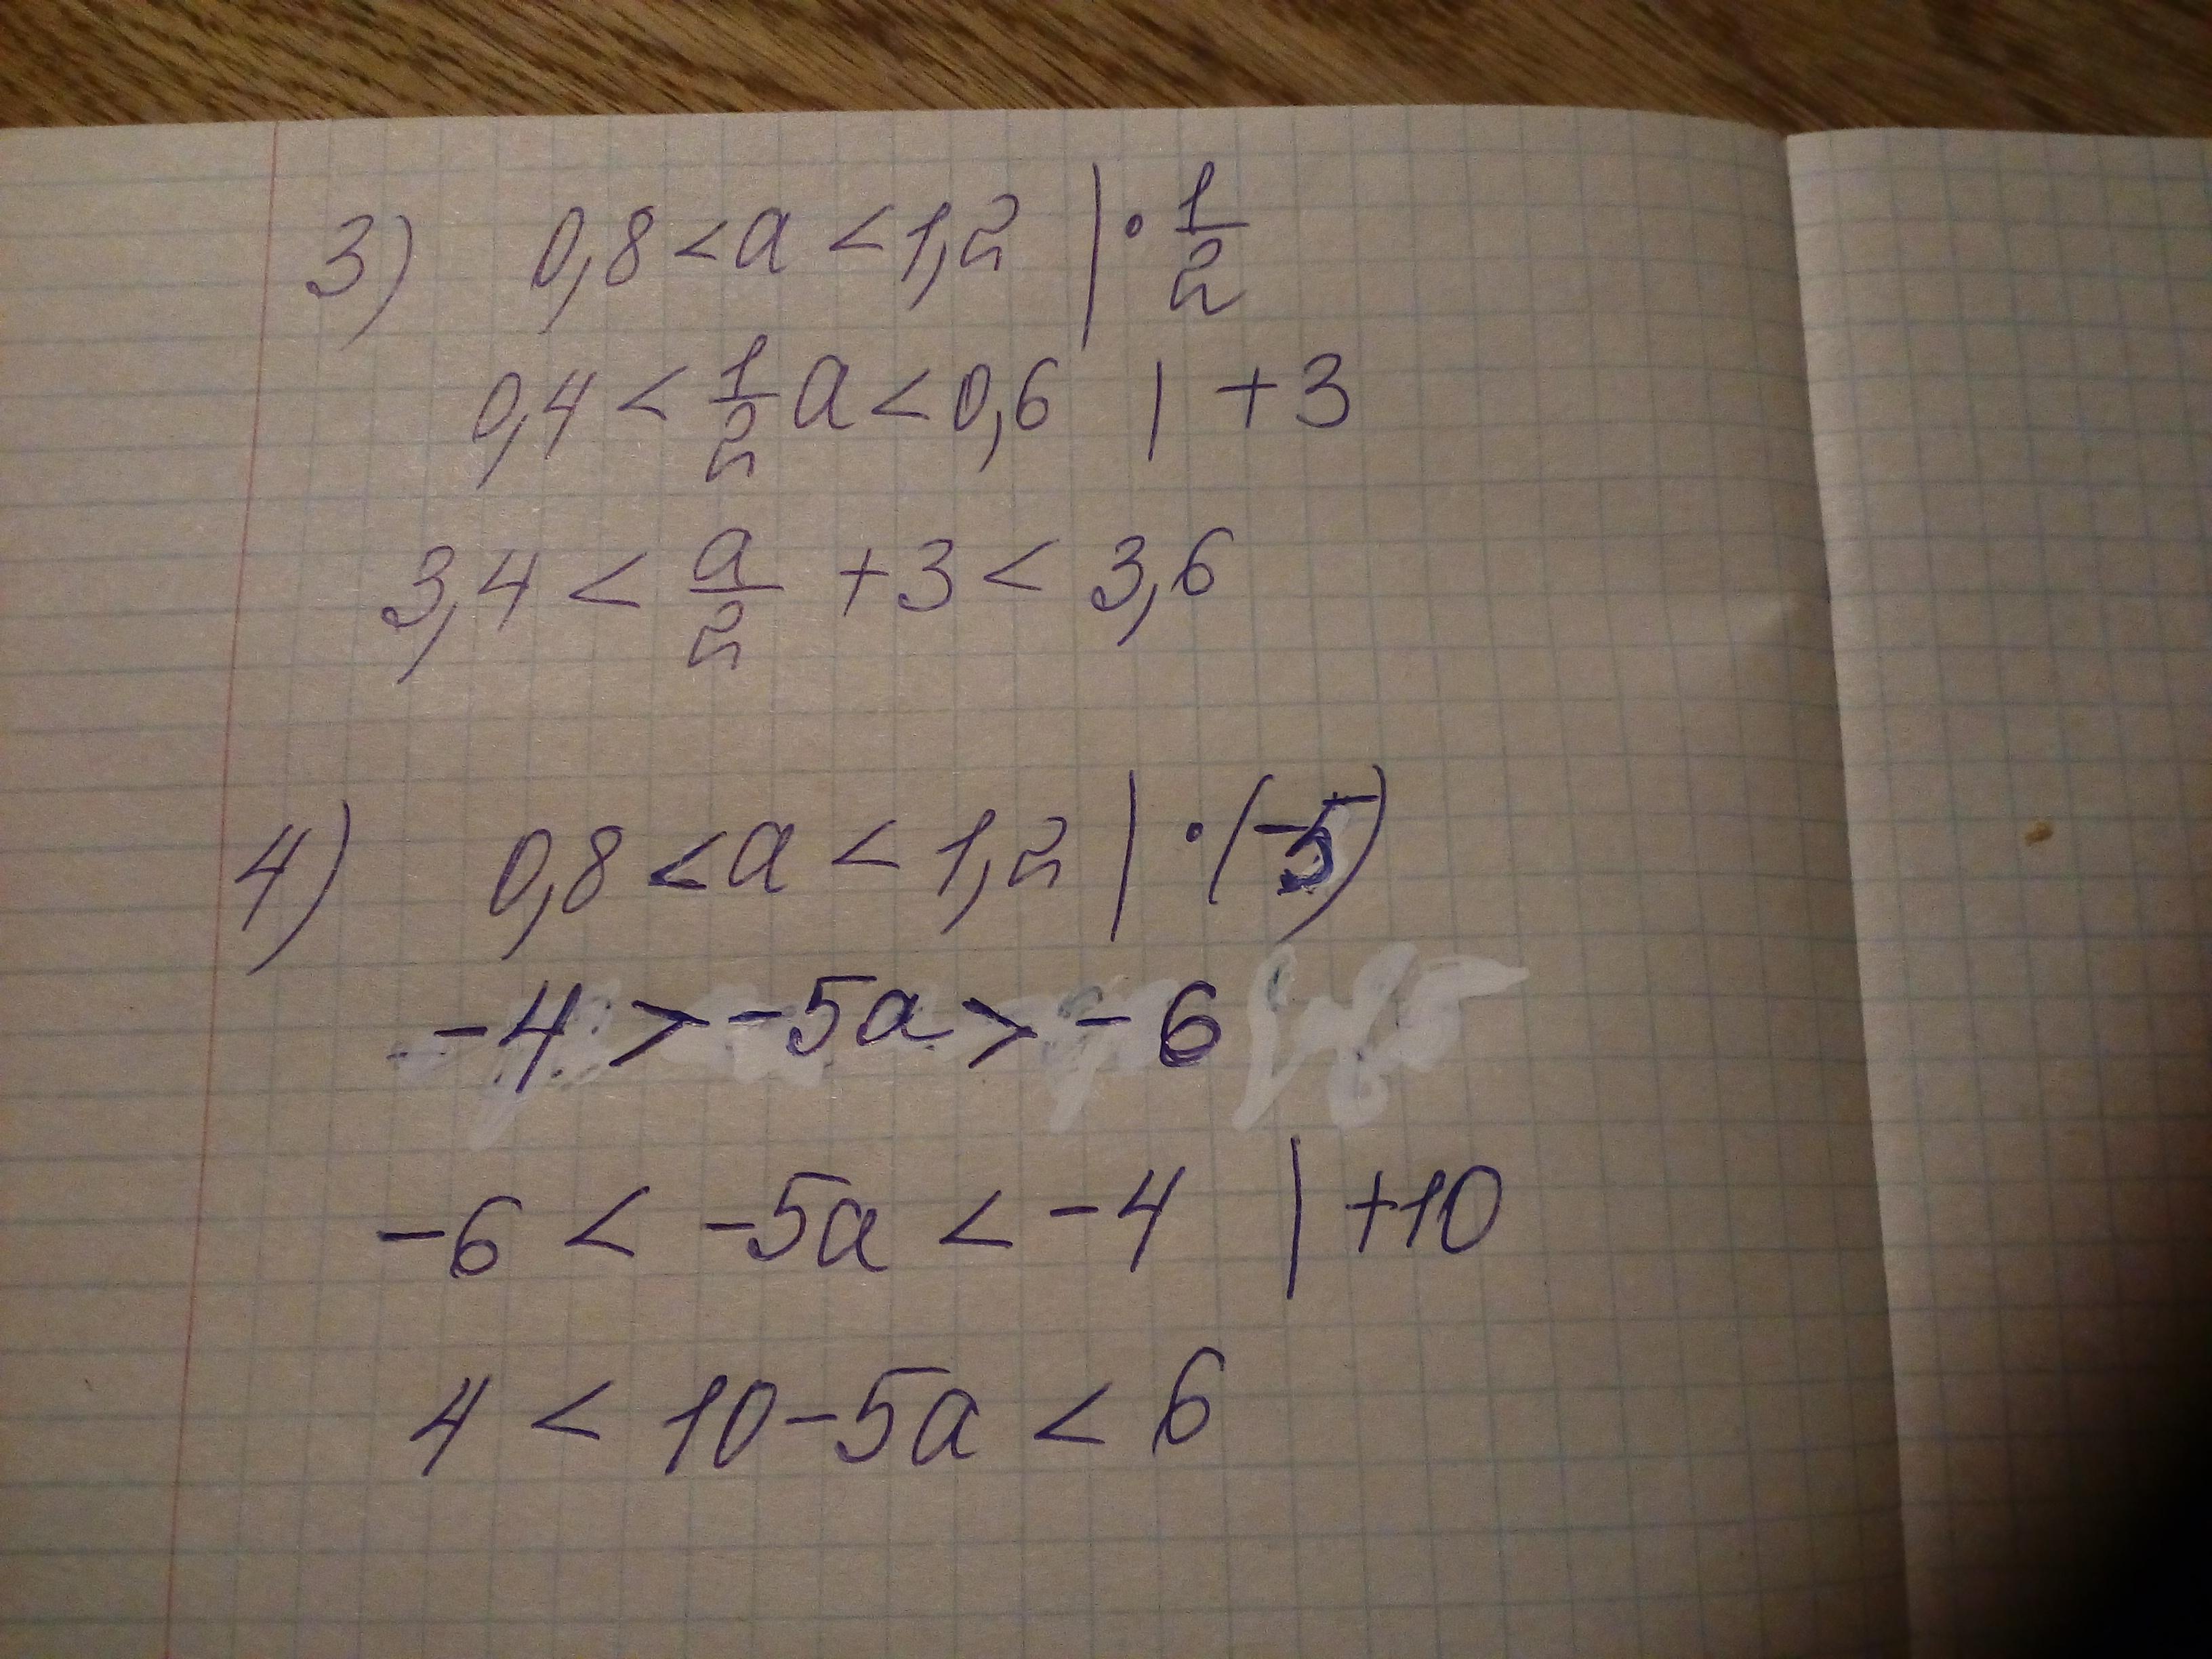 3) 0,8 < a < 1,2 | · 1/2
0,4 < 1/2 a < 0,6 | +3
3,4 < a/2 + 3 < 3,6
4) 0,8 < a < 1,2 | · (-5)
-4 > -5a > -6
-6 < -5a < -4 | +10
4 < 10 - 5a < 6